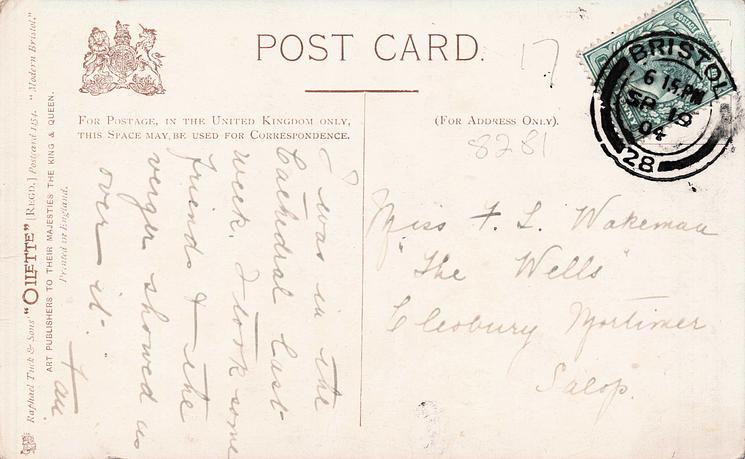 POST CARD.
17
FOR POSTAGE, IN THE UNITED KINGDOM ONLY,
THIS SPACE MAY BE USED FOR CORRESPONDENCE.
(FOR ADDRESS ONLY).
8281
BRISTOL
6 15 PM
SP 19
04
28
I was in the
Cathedral last
week. I took some
friends & the
verger showed us
over it.
Fan
Miss F. L. Wakeman
"The Wells"
Cleobury Mortimer
Salop.
Raphael Tuck & Sons' "OILETTE" [REGD.] Postcard 1154. "Modern Bristol."
ART PUBLISHERS TO THEIR MAJESTIES THE KING & QUEEN.
Printed in England.